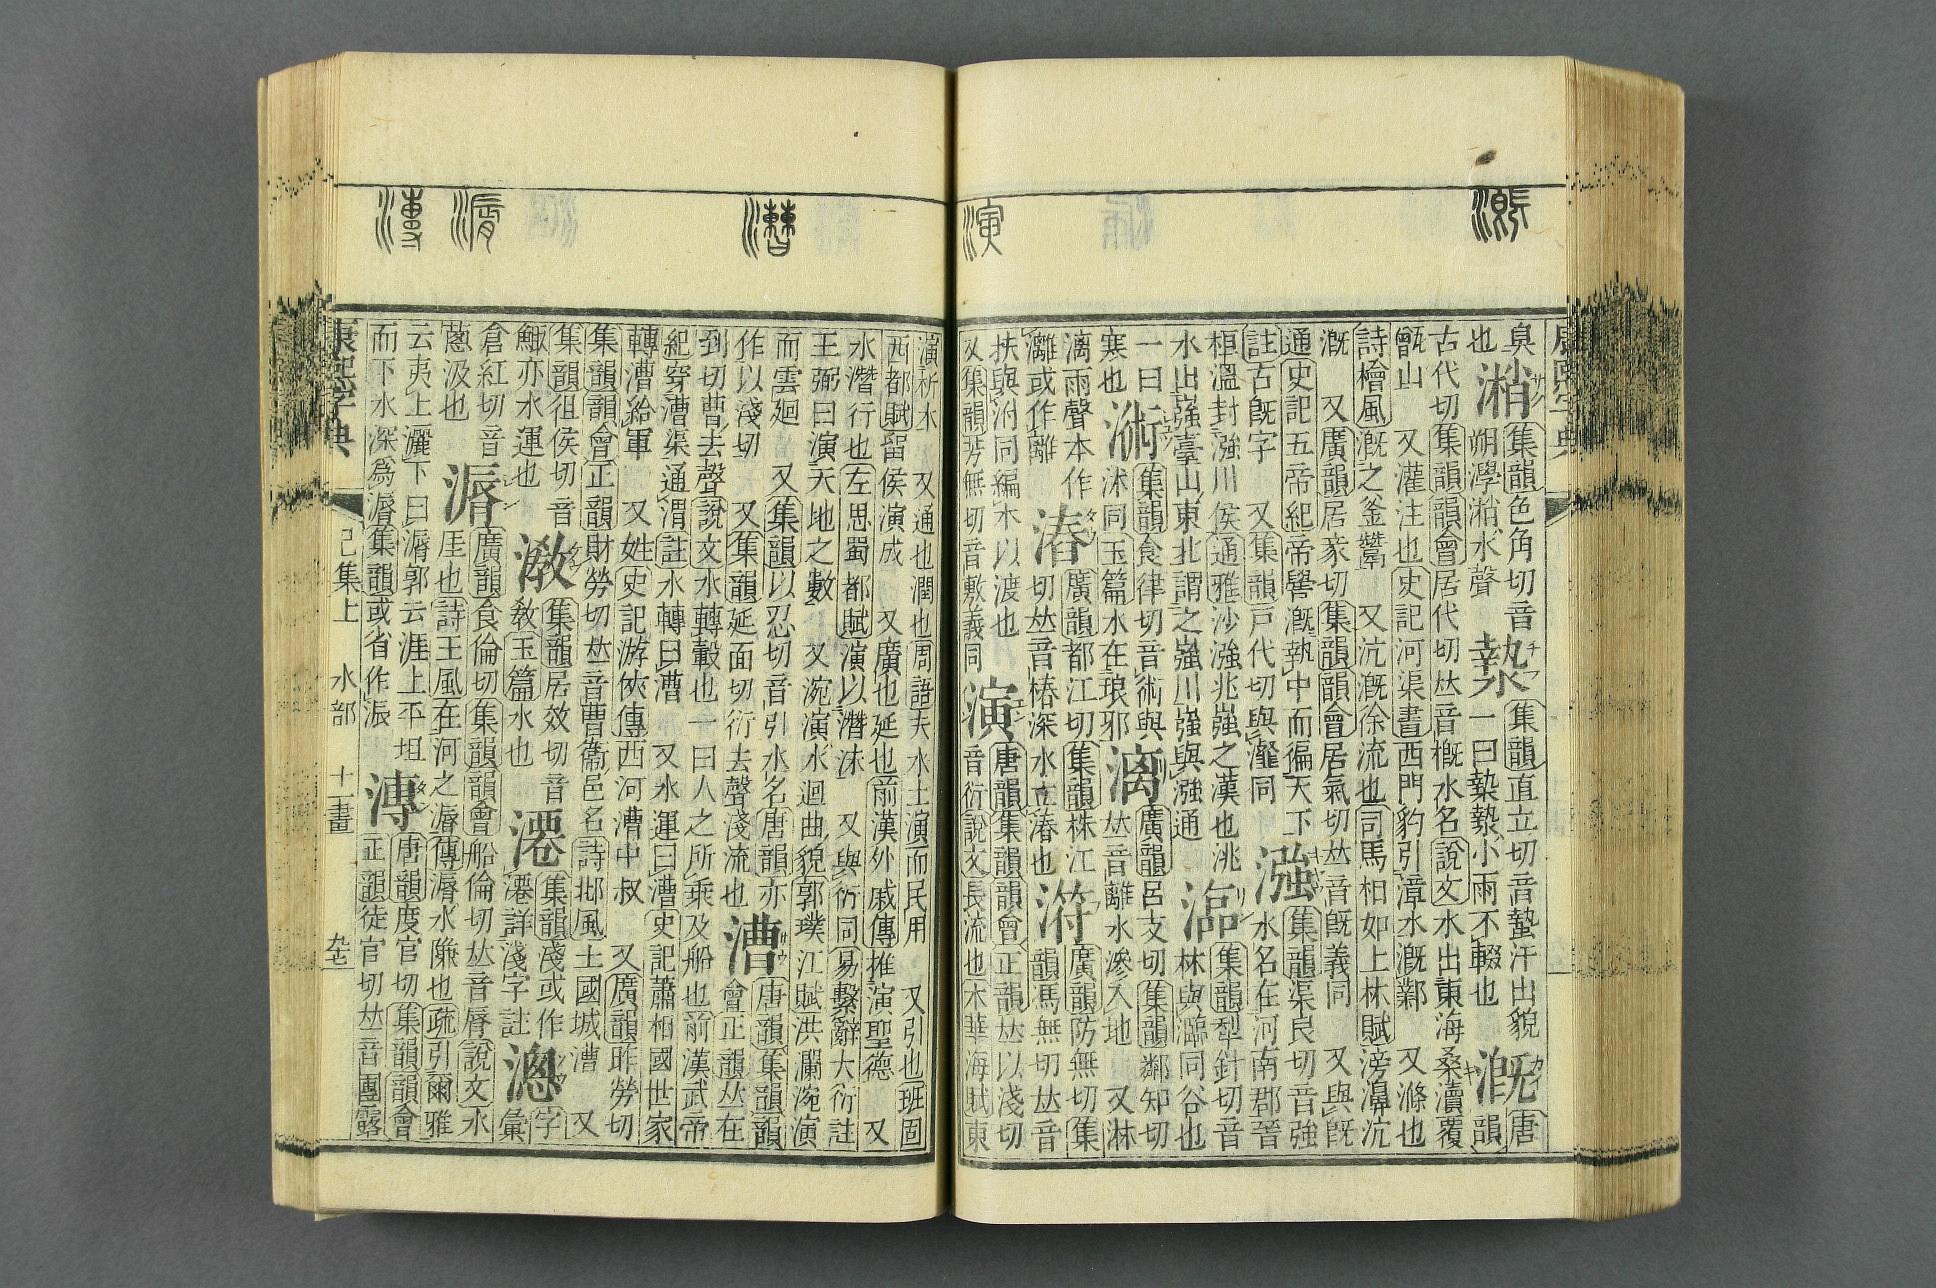 漑
演
康熙字典
臭
也
集韻色角切音
朔
水聲
漐
集韻直立切音蟄汗出貌
一曰漐漐小雨不輟也
漑
唐
韻
古代切集韻韻會居代切𠀤音槪水名說文水出東海桑瀆覆
甑山 又灌注也史記河渠書西門豹引漳水漑鄴 又滌也
詩檜風漑之釜鬵 又沆漑徐流也司馬相如上林賦滂濞沆
漑 又廣韻居豙切集韻韻會居氣切𠀤音旣義同 又與旣
通史記五帝紀帝嚳漑執中而徧天下
註古旣字 又集韻戸代切與瀣同
漒
集韻渠良切音強
水名在河南郡晉
桓溫封漒川侯通雅沙漒兆嶷之漢也洮
水出嵹臺山東北謂之嵹川嵹與漒通
集韻犁針切音
林與同谷也
一曰
寒也
集韻食律切音術與
沭同玉篇水在琅邪
漓
廣韻呂支切集韻鄰知切
𠀤音離水滲入地 又淋
漓雨聲本作
灕或作離
廣韻都江切集韻株江
切𠀤音樁深水立也
廣韻防無切集
韻馮無切𠀤音
扶與泭同編木以渡也
又集韻芳無切音敷義同
演
唐韻集韻韻會正韻𠀤以淺切
音衍說文長流也木華海賦東
漕
漘
漙
演析木 又通也潤也周語夫水土演而民用 又引也班固
西都賦留侯演成 又廣也延也前漢外戚傳推演聖德 又
水濳行也左思蜀都賦演以濳沬 又與衍同易繫辭大衍註
王弼曰演天地之數 又涴演水迴曲貌郭璞江賦洪瀾涴演
而雲廻 又集韻以忍切音引水名唐韻亦
作以淺切 又集韻延面切衍去聲淺流也
漕
唐韻集韻韻
會正韻𠀤在
到切曹去聲說文水轉轂也一曰人之所乘及船也前漢武帝
紀穿漕渠通渭註水轉曰漕 又水運曰漕史記蕭相國世家
轉漕給軍 又姓史記游俠傳西河漕中叔 又廣韻昨勞切
集韻韻會正韻財勞切𠀤音曹衞邑名詩邶風土國城漕 又
集韻徂侯切音
鯫亦水運也
漖
集韻居效切音
敎玉篇水也
集韻淺或作
詳淺字註
漗
字
彙
倉紅切音
蔥汲也
漘
廣韻食倫切集韻韻會船倫切𠀤音脣說文水
厓也詩王風在河之漘傳漘水隒也疏引爾雅
云夷上灑下曰漘郭云涯上平坦
而下水深爲漘集韻或省作
漙
唐韻度官切集韻韻會
正韻徒官切𠀤音團露
康熙字典 巳集上 水部 十一畫 九七